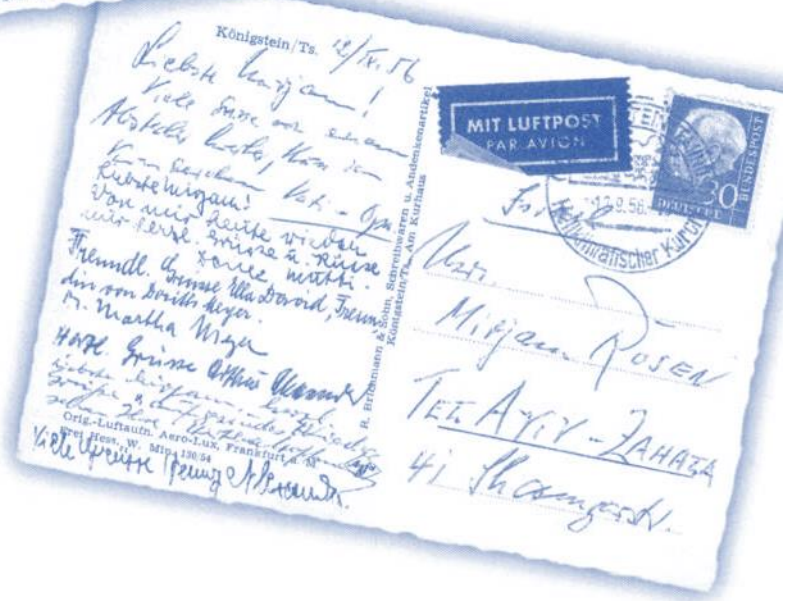 Königstein/Ts. 12/IX. 56
Liebste Mirjam!
Viele Grüsse von einem
Vati - Opa.
Liebste Mirjam!
Von mir heute wieder
nur herzl. Grüsse u. Küsse
Deine Mutti.
Freundl. Grüsse Ella David, Freun-
din von Doritts Meyer.
Martha Meyer
Herzl. Grüsse Arthur Alexander
Orig.-Luftaufn. Aero-Lux, Frankfurt a. M.
Frei Hess. W. Mip 136/54
Viele Grüsse Jenny Alexander.
R. Brühmann & Sohn, Schreibwaren u. Andenkenartikel
Königstein/Ts., Am Kurhaus
MIT LUFTPOST
PAR AVION
30
DEUTSCHE
BUNDESPOST
12.9.56
Heilklimatischer Kurort
Israel
Mrs.
Mirjam ROSEN
TEL AVIV - ZAHALA
41 Shamgarstr.